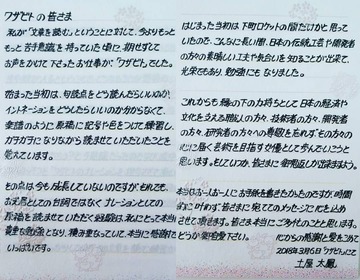 ワザビトの皆さま
私が「文章を読む」ということに対して、今よりもっと
もっと苦手意識を持っていた頃に、期せずして
お声をかけて下さったお仕事が、「ワザビト」でした。
始まった当初は、句読点をどう読んだらいいのか、
イントネーションをどうしたらいいのか分からなくて、
楽譜のように原稿に記号や色をつけて練習し、
ガチガチになりながら読ませていただいたことを
覚えています。
その点は今も成長していないのですが、それでも、
お芝居としての台詞ではなくナレーションとしての
原稿を読ませていただく経験は、私にとって本当に
貴重な勉強となり、積み重なって、本当に感謝で
いっぱいです。
はじまった当初は下町ロケットの間だけかと思って
いたので、こんなに長い間、日本の伝統工芸や開発者
の方々の素晴しい工夫や気合いを知ることが出来て、
光栄でもあり、勉強にもなりました。
これからも縁の下の力持ちとして日本の経済や
文化を支える職人の方々、技術者の方々、開発者
の方々、研究者の方々への尊敬を忘れず、その方々の
心に届く芸術を目指す女優として歩んでいこうと
思います。もしいつか、皆さまに御恩返しが出来ますよう。
本当はお一人お一人にお手紙を書きたかったのですが、時間
的に叶わず、皆さまに宛ててのメッセージに代え
させて頂きます。皆さま本当にご多忙のことと思います。
どうか御自愛下さい。
心からの感謝と愛をこめて
2018年3月6日「ワザビト」にて
土屋太鳳